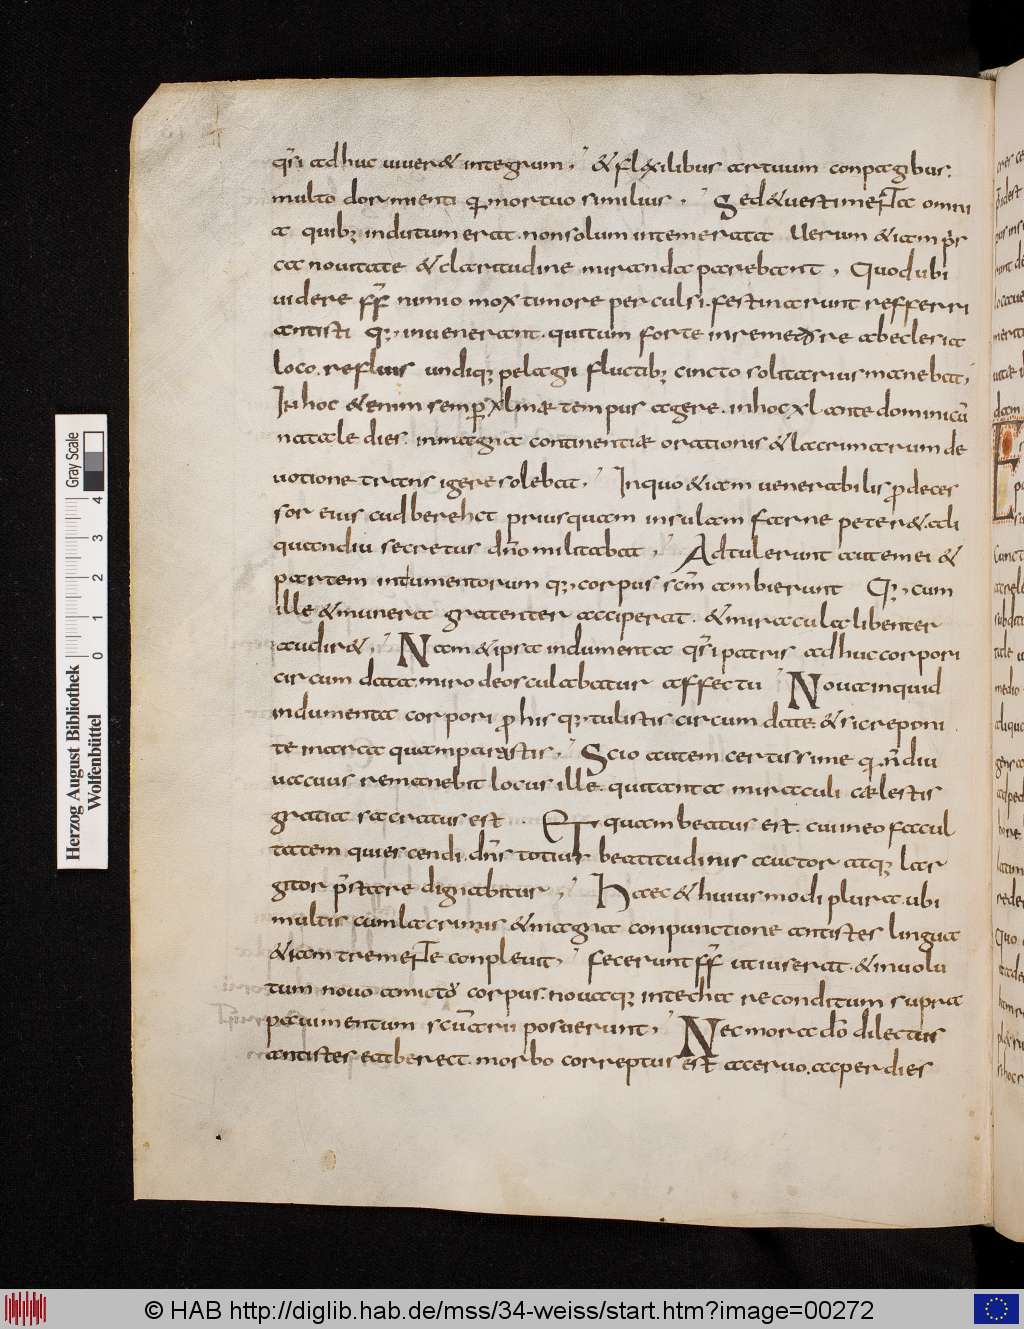 qsi adhuc uiueret integrum; & flexilibus artuum conpagibus;
multo dormienti q mortuo similius; Sed & uestimenta omni
a quib; indutum erat. non solum intemerata Uerum & iam pris
ca nouitate & claritudine miranda parebant, Quod ubi
uidere ff nimio mox timore perculsi. festinarunt refferri
antisti q; inuenerant. qui tum forte in remedsre ab eclesia
loco. refluis undiq; pelagi fluctib; cincto solitarius manebat;
In hoc & enim semp xlmae tempus agere. in hoc xl ante dominicū
natale dies. in magna continentiae orationis & lacrimarum de
uotione trans igere solebat; In quo & iam uenerabilis pdeces
sor eius cudberehct priusquam insulam farne peteret ali
quandiu secretus dno militabat; Adtulerunt autem ei &
partem indumentorum q; corpus scm ambierunt Q; cum
ille & munera gratenter acciperat. & miracula libenter
audiret; Nam & ipsa indumenta qsi patris adhuc corpori
circum data. miro deosculabatur affectu; Noua inquid
indumenta corpori p his q; tulistis circum date. & sic reponi
te in arca quam parastis; Scio autem certissime q n diu
uacuus remanebit locus ille. qui tanta miraculi caelestis
gratia sacratus est. Et quam beatus est. cui in eo facul
tatem quiescendi. dns totius beatitudinis auctor atq; lar
gitor pstare dignabitur; Haec & huius modi plura. ubi
multis cum lacrimis & magna conpunctione antistes lingua
& iam tremente conpleuit; fecerunt ff ut iuserat. & inuolu
tum nouo amicto corpus. nouaq; in techa reconditum supra
pauimentum scuarii posuerunt; Nec mora do dilectus
antistes eatberect. morbo correptus est aceruo. ac per dies
Gray Scale
4
3
2
1
0
Herzog August Bibliothek
Wolfenbüttel
© HAB http://diglib.hab.de/mss/34-weiss/start.htm?image=00272